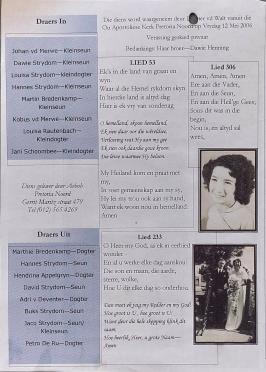 Draers In
Johan vd Merwe—Kleinseun
Dawie Strydom—Kleinseun
Louisa Strydom—Kleindogter
Hannes Strydom—Kleinseun
Martin Bredenkamp—
Kleinseun
Kobus vd Merwe—Kleinseun
Louisa Rautenbach—
Kleindogter
Jani Schoombee—Kleindogter
Diens gelewer deur Avbob
Pretoria Noord
Gerrit Maritz straat 479
Tel (012) 565 4269
Draers Uit
Marthie Bredenkamp—Dogter
Hannes Strydom—Seun
Hendrina Appelgryn—Dogter
David Strydom—Seun
Adri v Deventer—Dogter
Buks Strydom—Seun
Jaco Strydom—Seun/
Kleinseun
Petro De Ru—Dogter
Die diens word waargeneem deur vd Walt vanuit die
Ou Apostoliese Kerk Pretoria Noord op Vrydag 12 Mei 2006
Verassing geskied privaat
Bedankings: Haar broer—Dawie Henning
LIED 53
Ek's in die land van graan en
wyn,
Waar al die Hemel rykdom skyn
In heerlike land is altyd dag
Hier is ek vry van sondernag
O hemelland, skoon hemelland,
Verlossing
My Heiland kom en praat met
my,
In soet gemeenskap aan my sy,
Hy lei my tou ook aan sy hand,
Want ek woon nou in hemelland.
Amen
Lied 233
O Heer my God, as ek in eerbied
wonder
En al u werke elke dag aanskou.
Die son en maan, die aarde,
sterre, wolke,
Hoe U dit elke dag so onderhou.
Dan moet ek juig my Redder en my God
Hoe groot is U, hoe groot is U
Want deur die hele skepping klink dit
saam
Hoe heerlik, Heer, u grote Naam—
Amen
Lied 306
Amen, Amen, Amen
Ere aan die Vader,
En aan die Seun,
En aan die Heil'ge Gees,
Soos dit was in die
begin,
Nou is, en altyd sal
wees,